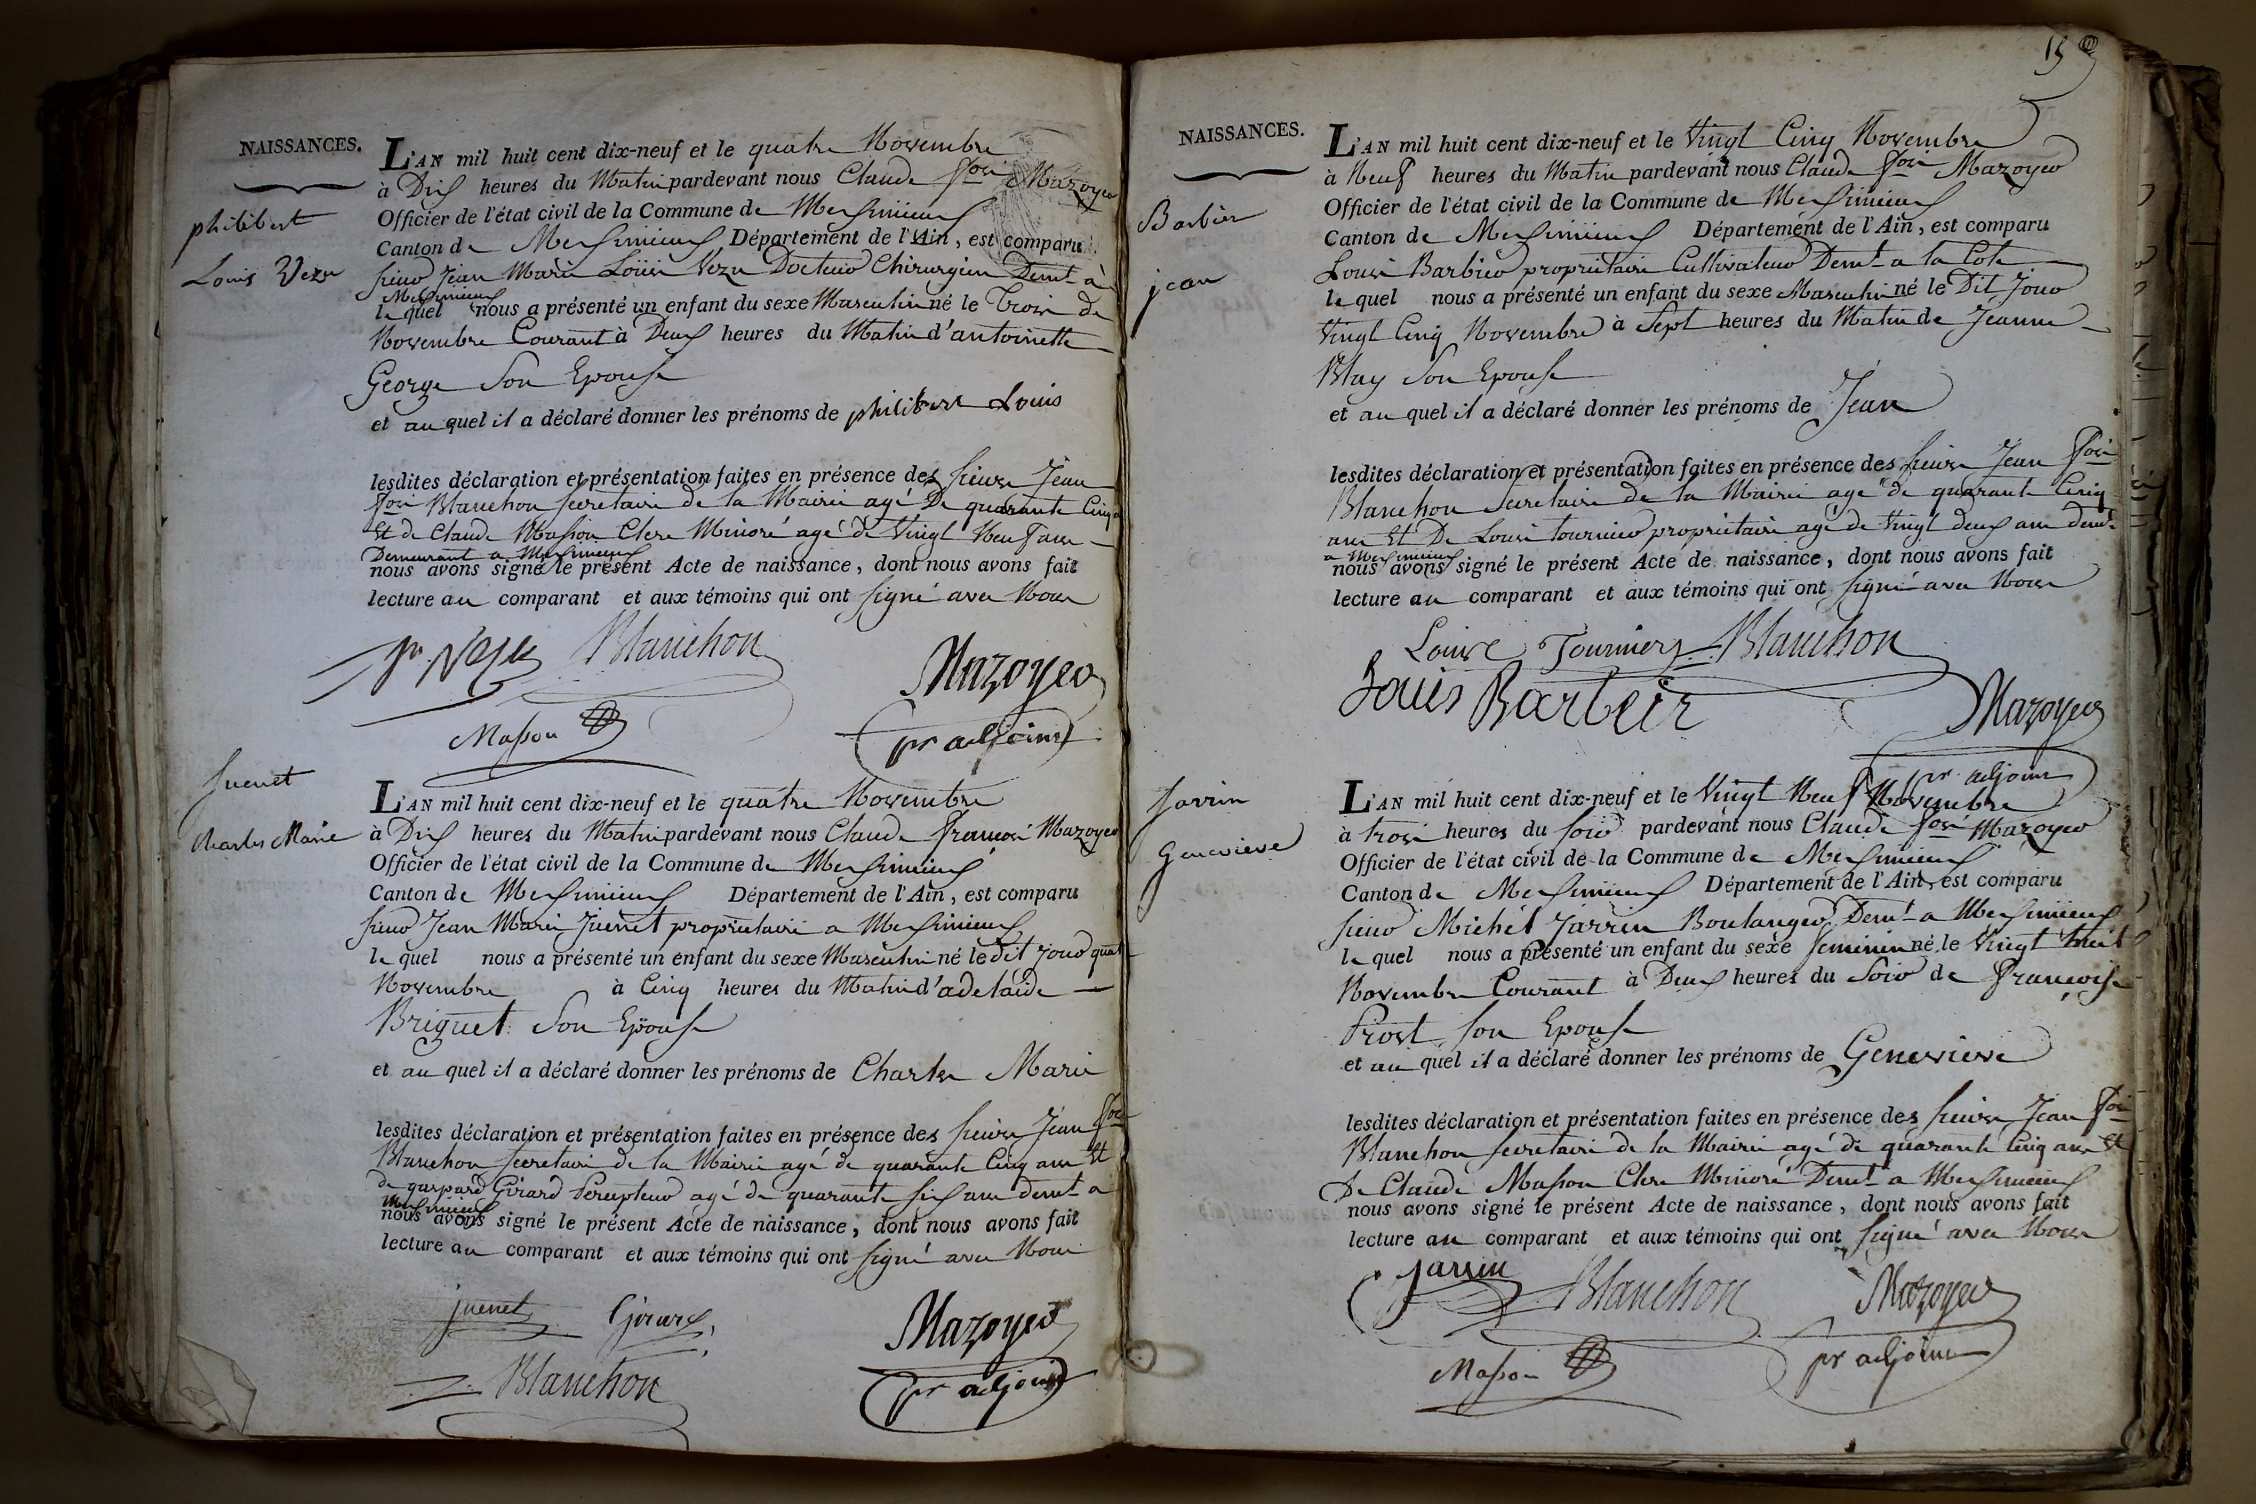 NAISSANCES.
philibert
Louis Vezu
L'AN mil huit cent dix-neuf et le quatre Novembre
à Dix heures du Matin pardevant nous Claude fois Mazoyer
Officier de l'état civil de la Commune de Meximieux
Canton de Meximieux Département de l'Ain, est comparu
sieur Jean Marie Louis Vezu Docteur Chirurgien Demt à
Meximieux
le quel nous a présenté un enfant du sexe Masculin né le Trois de
Novembre Courant à Deux heures du Matin d'antoinette
George Son Epouse
et au quel il a déclaré donner les prénoms de philibert Louis
lesdites déclaration et présentation faites en présence des sieurs Jean
fois Blanchon secretaire de la Mairie agé De quarante Cinq
Et de Claude Masson Clerc Minoré agé de Vingt Neuf ans
Demeurant a Meximieux
nous avons signé le présent Acte de naissance, dont nous avons fait
lecture au comparant et aux témoins qui ont signé avec Nous
Blanchon
Mazoyer
Masson
pr adjoint
Juenet
Charles Marie
L'AN mil huit cent dix-neuf et le quatre Novembre
à Dix heures du Matin pardevant nous Claude françois Mazoyer
Officier de l'état civil de la Commune de Meximieux
Canton de Meximieux Département de l'Ain, est comparu
sieur Jean Marie Juenet proprietaire a Meximieux
le quel nous a présenté un enfant du sexe Masculin né le dit jour quatre
Novembre à Cinq heures du Matin d'adelaide
Briquet Son Epouse
et au quel il a déclaré donner les prénoms de Charles Marie
lesdites déclaration et présentation faites en présence des sieurs Jean fois
Blanchon secretaire de la Mairie agé de quarante Cinq ans Et
de gaspard Girard Percepteur agé de quarante six ans demt a
Meximieux
nous avons signé le présent Acte de naissance, dont nous avons fait
lecture au comparant et aux témoins qui ont signé avec Nous
juenet Girard
Mazoyer
Blanchon
pr adjoint
NAISSANCES.
Barbier
jean
L'AN mil huit cent dix-neuf et le Vingt Cinq Novembre
à Neuf heures du Matin pardevant nous Claude fois Mazoyer
Officier de l'état civil de la Commune de Meximieux
Canton de Meximieux Département de l'Ain, est comparu
Louis Barbier proprietaire Cultivateur Demt a la Cote
le quel nous a présenté un enfant du sexe Masculin né le Dit Jour
Vingt Cinq Novembre à Sept heures du Matin de Jeanne
Blay Son Epouse
et au quel il a déclaré donner les prénoms de Jean
lesdites déclaration et présentation faites en présence des sieurs Jean fois
Blanchon Secretaire de la Mairie agé de quarante Cinq
ans Et De Louis tournier proprietaire agé de Vingt deux ans demt
a Meximieux
nous avons signé le présent Acte de naissance, dont nous avons fait
lecture au comparant et aux témoins qui ont signé avec Nous
Louis Tournier Blanchon
Louis Barbeir
Mazoyer
pr adjoint
Jarrin
Genevieve
L'AN mil huit cent dix-neuf et le Vingt Neuf Novembre
à trois heures du soir pardevant nous Claude fois Mazoyer
Officier de l'état civil de la Commune de Meximieux
Canton de Meximieux Département de l'Ain, est comparu
sieur Michel Jarrin Boulanger Demt a Meximieux
le quel nous a présenté un enfant du sexe feminin né le Vingt huit
Novembre Courant à Deux heures du Soir de françoise
Prost son Epouse
et au quel il a déclaré donner les prénoms de Genevieve
lesdites déclaration et présentation faites en présence des sieurs Jean fois
Blanchon secretaire de la Mairie agé de quarante Cinq ans Et
De Claude Masson Clerc Minoré Demt a Meximieux
nous avons signé le présent Acte de naissance, dont nous avons fait
lecture au comparant et aux témoins qui ont signé avec Nous
Jarrin Blanchon Mazoyer
Masson
pr adjoint